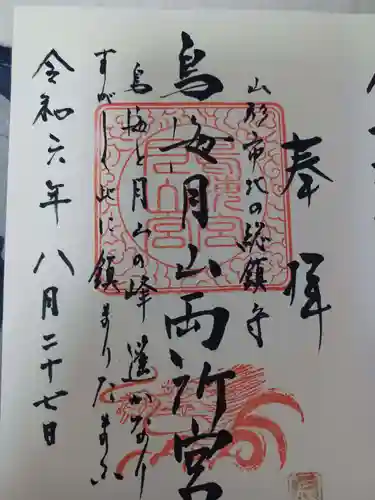 奉拝
山形市北の総鎮守
鳥海月山両所宮
鳥海と月山の峰 遥かなり
すがしく此に鎮まりたまふ
令和六年 八月二十七日